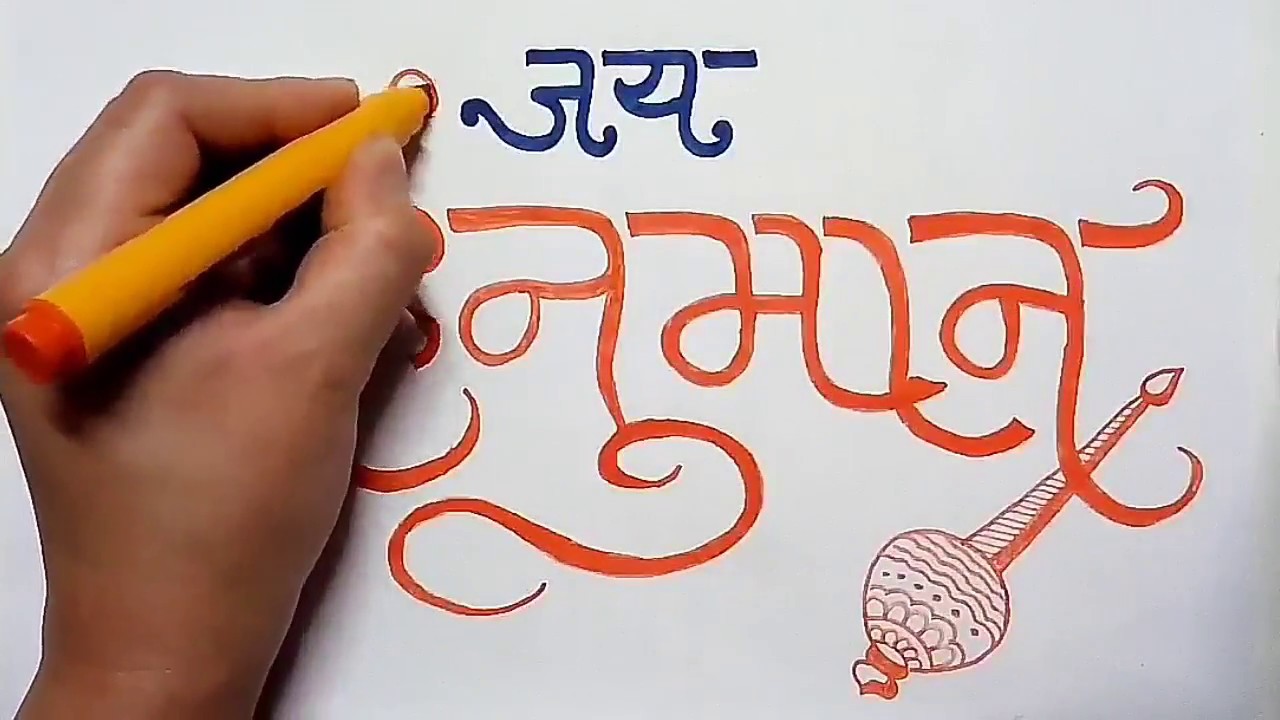 जय
हनुमान